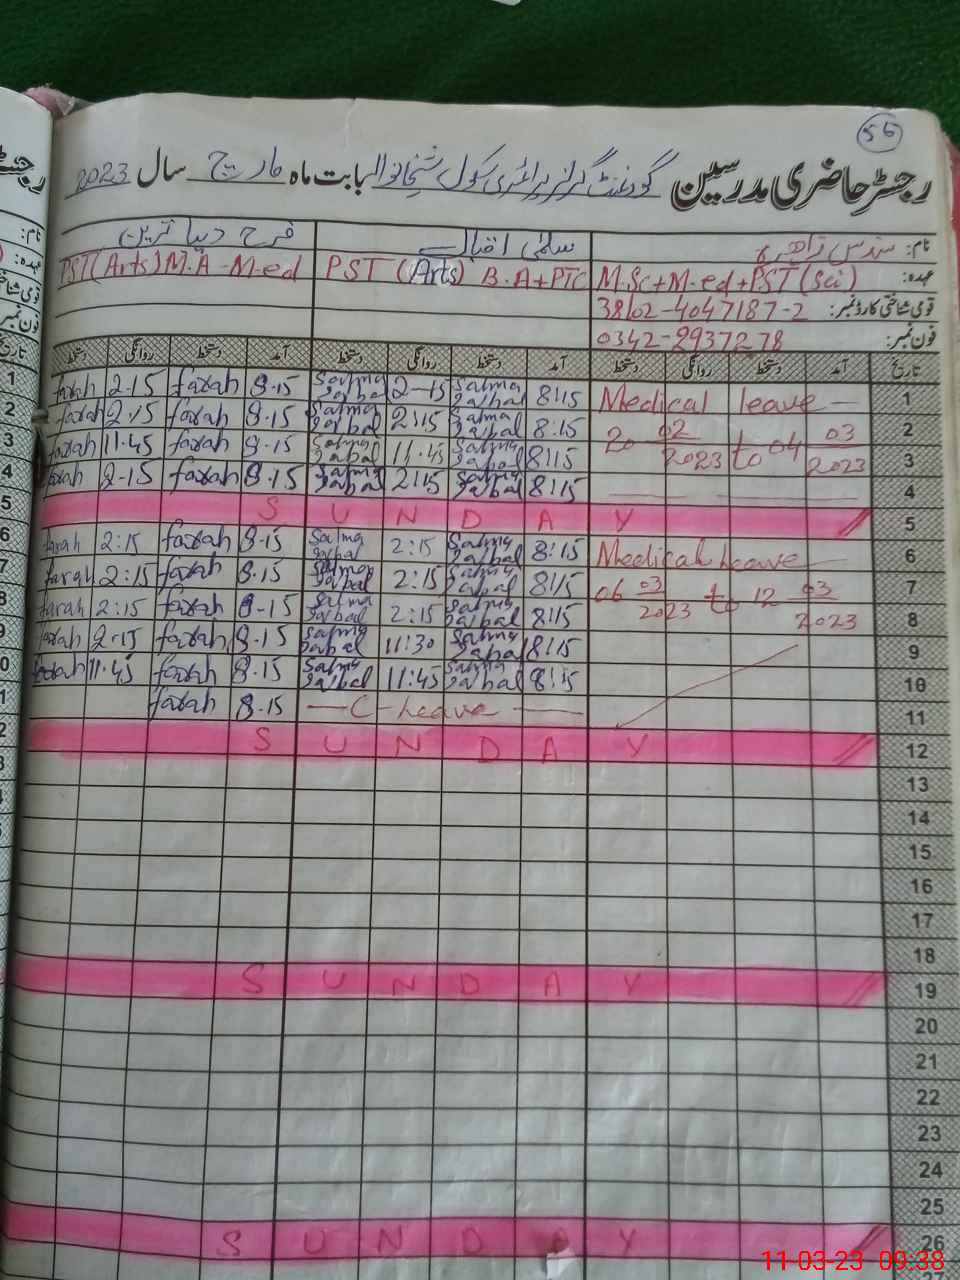 56
رجسٹر حاضری مدرسین گورنمنٹ گرلز پرائمری سکول بابت ماہ مارچ سال 2023
نام: سلمیٰ اقبال فرح
عہدہ: M.Sc+M.ed+PST(Sci) PST (Arts) B.A+PTC PST(Arts) M.A-M.ed
قومی شناختی کارڈ نمبر: 38102-4047187-2
فون نمبر: 0342-2937278
تاریخ آمد دستخط روانگی دستخط آمد دستخط روانگی دستخط آمد دستخط روانگی دستخط
farah 2.15 farah 8.15 Salma Iqbal 2-15 Salma Iqbal 8:15 Medical leave 1
farah 2.15 farah 8.15 Salma Iqbal 2:15 Salma Iqbal 8:15 20 02/2023 to 04 03/2023 2
farah 11.45 farah 8.15 Salma Iqbal 11:45 Salma Iqbal 8:15 3
farah 2.15 farah 8.15 Salma Iqbal 2:15 Salma Iqbal 8:15 4
S U N D A Y 5
farah 2:15 farah 8.15 Salma Iqbal 2:15 Salma Iqbal 8:15 Medical Leave 6
farah 2:15 farah 8.15 Salma Iqbal 2:15 Salma Iqbal 8:15 06 03/2023 to 12 03/2023 7
farah 2:15 farah 8-15 Salma Iqbal 2:15 Salma Iqbal 8:15 8
farah 2.15 farah 8.15 Salma Iqbal 11:30 Salma Iqbal 8:15 9
farah 11.45 farah 8.15 Salma Iqbal 11:45 Salma Iqbal 8:15 10
farah 8.15 C-Leave 11
S U N D A Y 12
13
14
15
16
17
18
S U N D A Y 19
20
21
22
23
24
25
S U N D A Y 26
27
11-03-23 09:38